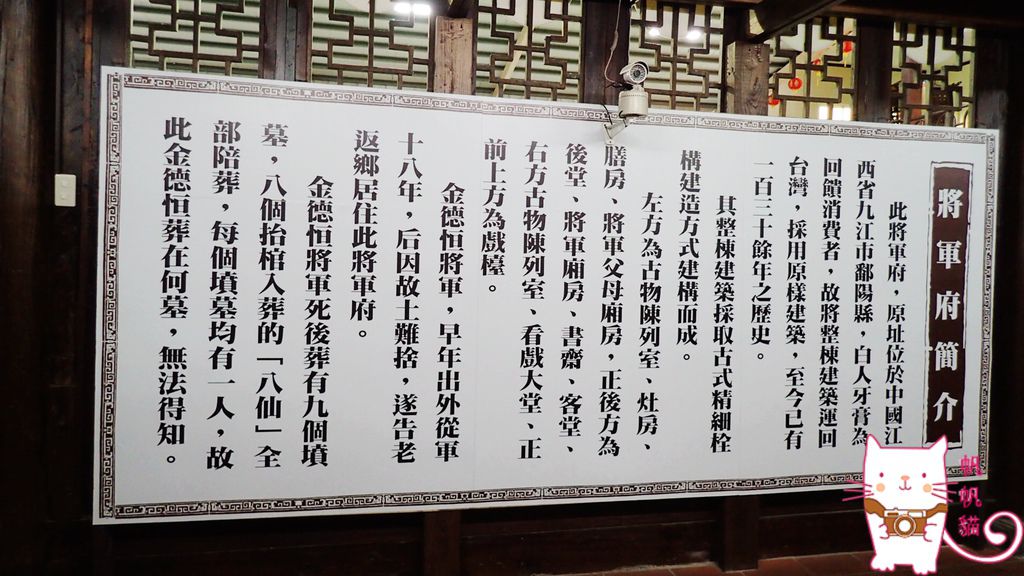 將軍府簡介
此將軍府，原址位於中國江
西省九江市鄱陽縣，白人牙膏為
回饋消費者，故將整棟建築運回
台灣，採用原樣建築，至今已有
一百三十餘年之歷史。
其整棟建築採取古式精細栓
構建造方式建構而成。
左方為古物陳列室、灶房、
膳房、將軍父母廂房，正後方為
後堂、將軍廂房、書齋、客堂、
右方古物陳列室、看戲大堂、正
前上方為戲檯。
金德恒將軍，早年出外從軍
十八年，后因故土難捨，遂告老
返鄉居住此將軍府。
金德恒將軍死後葬有九個墳
墓，八個抬棺入葬的「八仙」全
部陪葬，每個墳墓均有一人，故
此金德恒葬在何墓，無法得知。
帆帆貓